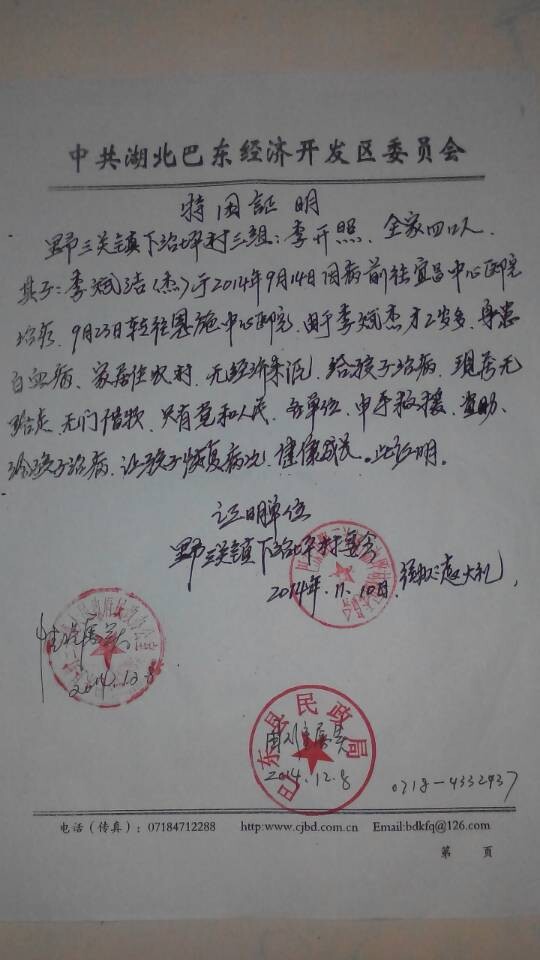 中共湖北巴东经济开发区委员会
特困証明
野三关镇下治坪村三组:李开照,全家四口人
其子:李斌洁(杰)于2014年9月14日因病前往宜昌中心医院
治疗,9月23日转往恩施中心医院,由于李斌杰才2岁多,身患
白血病,家居住农村,无经济来源,给孩子治病,现房无
无门借钱,只有党和人民,各单位,申手救援,资助、
给孩子治病,让孩子恢复病,健康成长。此证明。
证明单位
野三关镇下治坪村委会
2014年.11.10日
情况属实
2014.12.8
巴东县民政局
情况属实
2014.12.8
0718-4332937
电话(传真):07184712288 http:www.cjbd.com.cn Email:bdkfq@126.com
第 页